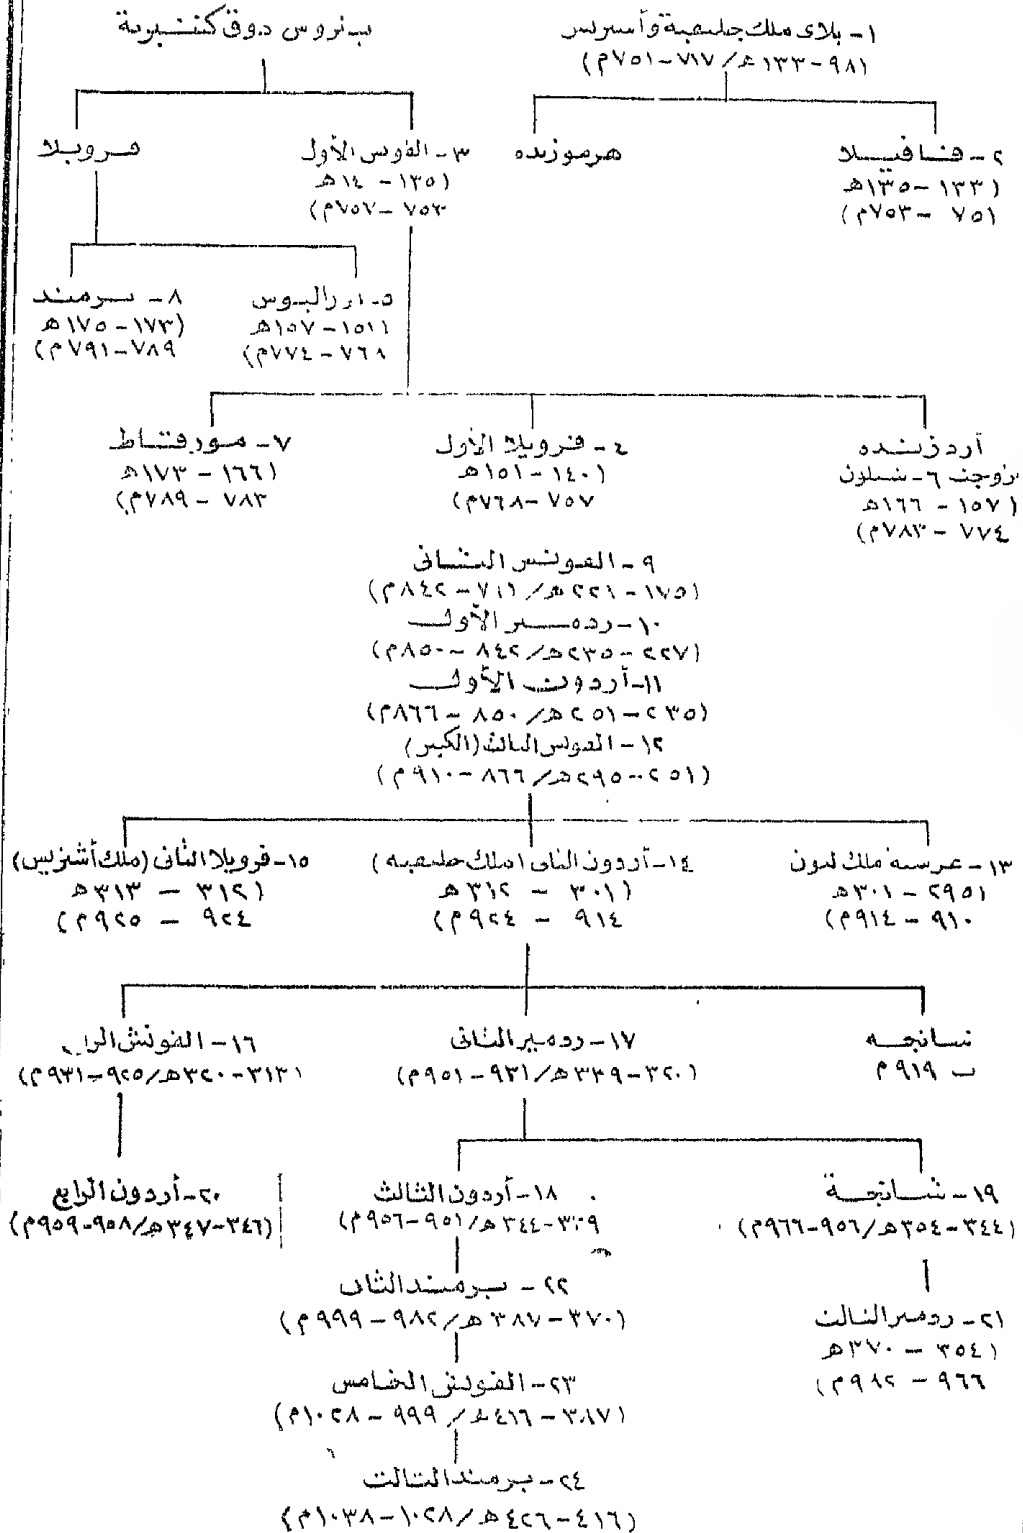 ١- بلاى ملك جليقية وأستريس
(٩٨١-١٣٣ هـ/٧١٧-٧٥١م)
بتروس دوق كنتبرية
٢- فافيلا
(١٣٣-١٣٥هـ
٧٥١-٧٥٣م)
هرموزنده
٣- الفونس الأول
(١٣٥-١٤٠هـ
٧٥٣-٧٥٧م)
فرويلا
٥- اورالبوس
١٥١-١٥٧هـ
٧٦٨-٧٧٤م)
٨- برمند
(١٧٣-١٧٥هـ
٧٨٩-٧٩١م)
أردزنده
زوجت ٦- شلون
(١٥٧-١٦٦هـ
٧٧٤-٧٨٣م)
٤- فرويلا الأول
(١٤٠-١٥١هـ
٧٥٧-٧٦٨م)
٧- مورقاط
(١٦٦-١٧٣هـ
٧٨٣-٧٨٩م)
٩- الفونس الثانى
(١٧٥-٢٢١هـ/٧٩١-٨٤٢م)
١٠- ردمير الأول
(٢٢٧-٢٣٥هـ/٨٤٢-٨٥٠م)
١١- أردون الأول
(٢٣٥-٢٥١هـ/٨٥٠-٨٦٦م)
١٢- الفونس الثالث (الكبير)
(٢٥١-٢٩٥هـ/٨٦٦-٩١٠م)
١٣- غرسية ملك ليون
(٢٩٥-٣٠١هـ
٩١٠-٩١٤م)
١٤- أردون الثانى (ملك جليقية)
(٣٠١-٣١٢هـ
٩١٤-٩٢٤م)
١٥- فرويلا الثانى (ملك أشتريس)
(٣١٢-٣١٣هـ
٩٢٤-٩٢٥م)
شانجه
ت ٩١٩م
١٧- ردمير الثانى
(٣٢٠-٣٣٩هـ/٩٣١-٩٥١م)
١٦- الفونش الرابع
(٣١٣-٣٢٠هـ/٩٢٥-٩٣١م)
١٩- شانجة
(٣٤٤-٣٥٤هـ/٩٥٦-٩٦٦م)
١٨- أردون الثالث
٣٣٩-٣٤٤هـ/٩٥١-٩٥٦م)
٢٠- أردون الرابع
(٣٤٦-٣٤٧هـ/٩٥٨-٩٥٩م)
٢١- ردمير الثالث
(٣٥٤-٣٧٠هـ
٩٦٦-٩٨٢م)
٢٢- برمند الثانى
(٣٧٠-٣٨٧هـ/٩٨٢-٩٩٩م)
٢٣- الفونش الخامس
(٣٨٧-٤١٦هـ/٩٩٩-١٠٢٨م)
٢٤- برمند الثالث
(٤١٦-٤٢٦هـ/١٠٢٨-١٠٣٨م)